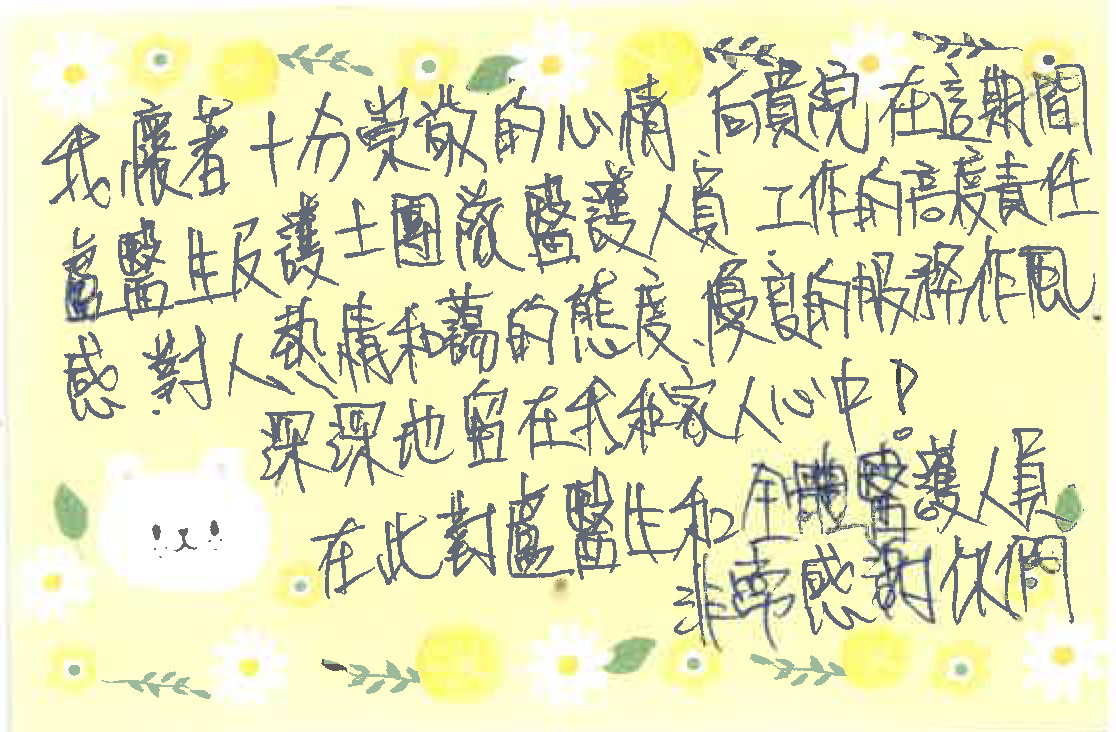 我懷著十分榮敬的心情 向貴院在這期間
盧醫生及護士團隊醫護人員 工作的高度責任
感、對人熱情和藹的態度、優良的服務作風
深深地留在我和家人心中!
在此對盧醫生和全體醫護人員
非常感謝你們